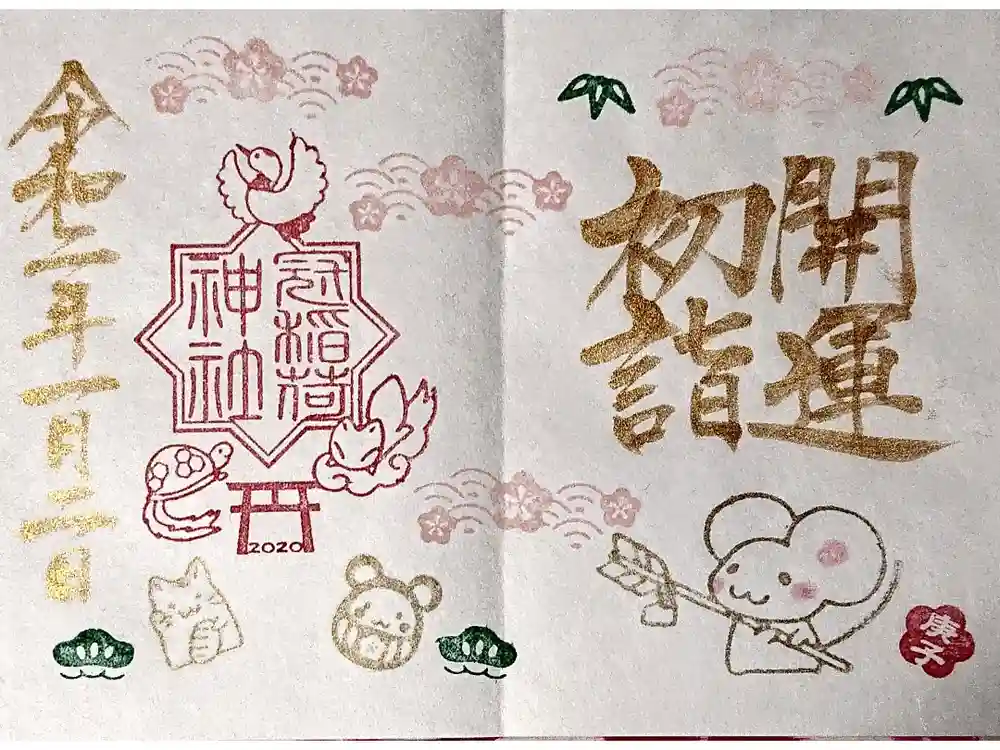 開運
初詣
庚子
冠稲荷
神社
2020
令和二年一月二日